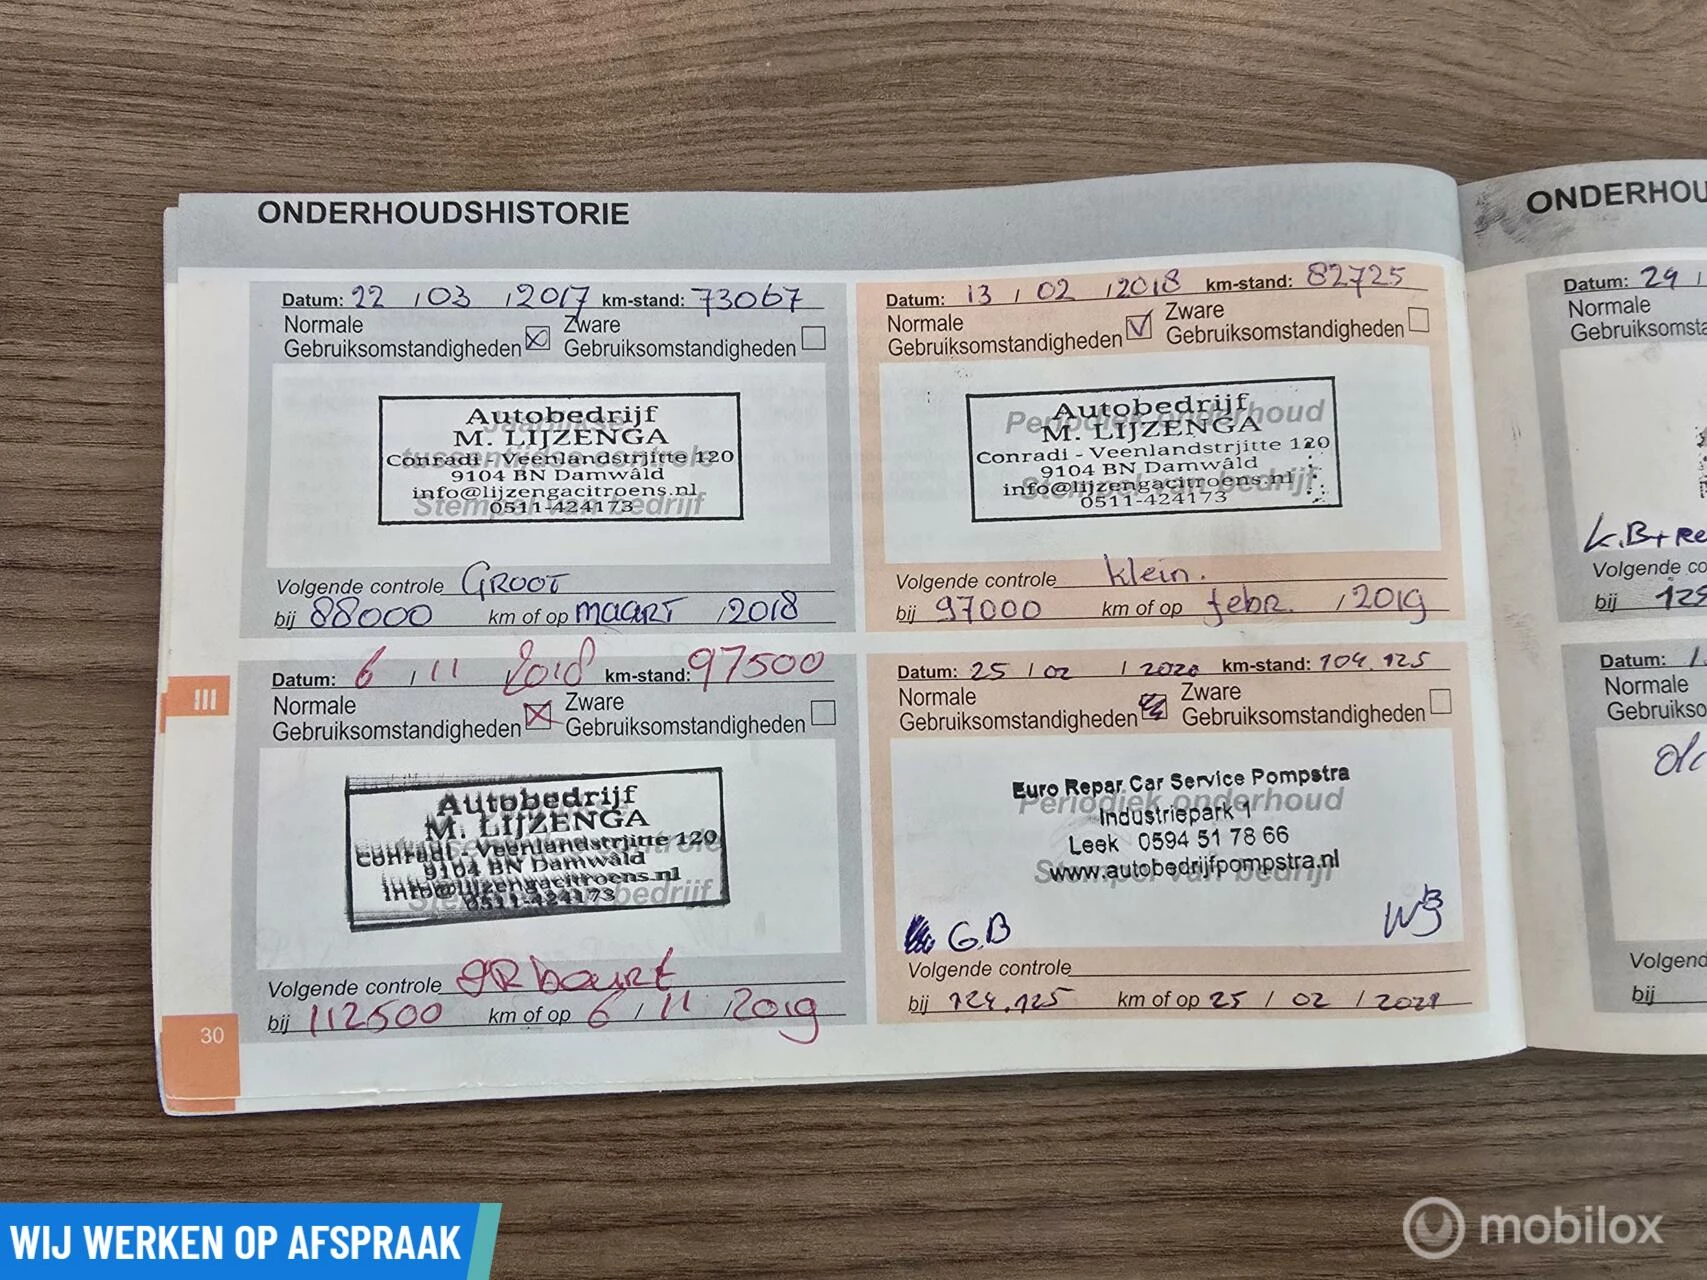 ONDERHOUDSHISTORIE
Datum: 22 / 03 / 2017 km-stand: 73067
Normale Gebruiksomstandigheden Zware Gebruiksomstandigheden
Jaarlijkse tussentijdse controle
Stempel van bedrijf
Autobedrijf
M. LIJZENGA
Conradi - Veenlandstrjitte 120
9104 BN Damwâld
info@lijzengacitroens.nl
0511-424173
Volgende controle GROOT
bij 88000 km of op maart / 2018
Datum: 13 / 02 / 2018 km-stand: 82725
Normale Gebruiksomstandigheden Zware Gebruiksomstandigheden
Periodiek onderhoud
Stempel van bedrijf
Autobedrijf
M. LIJZENGA
Conradi - Veenlandstrjitte 120
9104 BN Damwâld
info@lijzengacitroens.nl
0511-424173
Volgende controle klein.
bij 97000 km of op febr. / 2019
Datum: 6 / 11 2018 km-stand: 97500
Normale Gebruiksomstandigheden Zware Gebruiksomstandigheden
Autobedrijf
M. LIJZENGA
Conradi - Veenlandstrjitte 120
9104 BN Damwâld
info@lijzengacitroens.nl
0511-424173
Stempel van bedrijf
Volgende controle GR beurt
bij 112500 km of op 6 / 11 / 2019
Datum: 25 / 02 / 2020 km-stand: 104.125
Normale Gebruiksomstandigheden Zware Gebruiksomstandigheden
Periodiek onderhoud
Stempel van bedrijf
Euro Repar Car Service Pompstra
Industriepark 1
Leek 0594 51 78 66
www.autobedrijfpompstra.nl
G.B
Volgende controle
bij 124.125 km of op 25 / 02 / 2021
III
30
ONDERHOU
Datum: 29 /
Normale
Gebruiksomsta
Volgende co
bij
Datum:
Normale
Gebruikso
Volgend
bij
WIJ WERKEN OP AFSPRAAK
mobilox